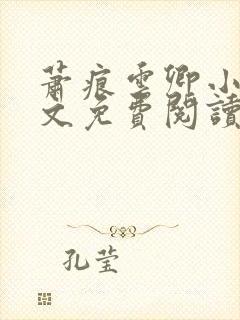 蕭痕雲卿小
文免費閱讀
孔莹